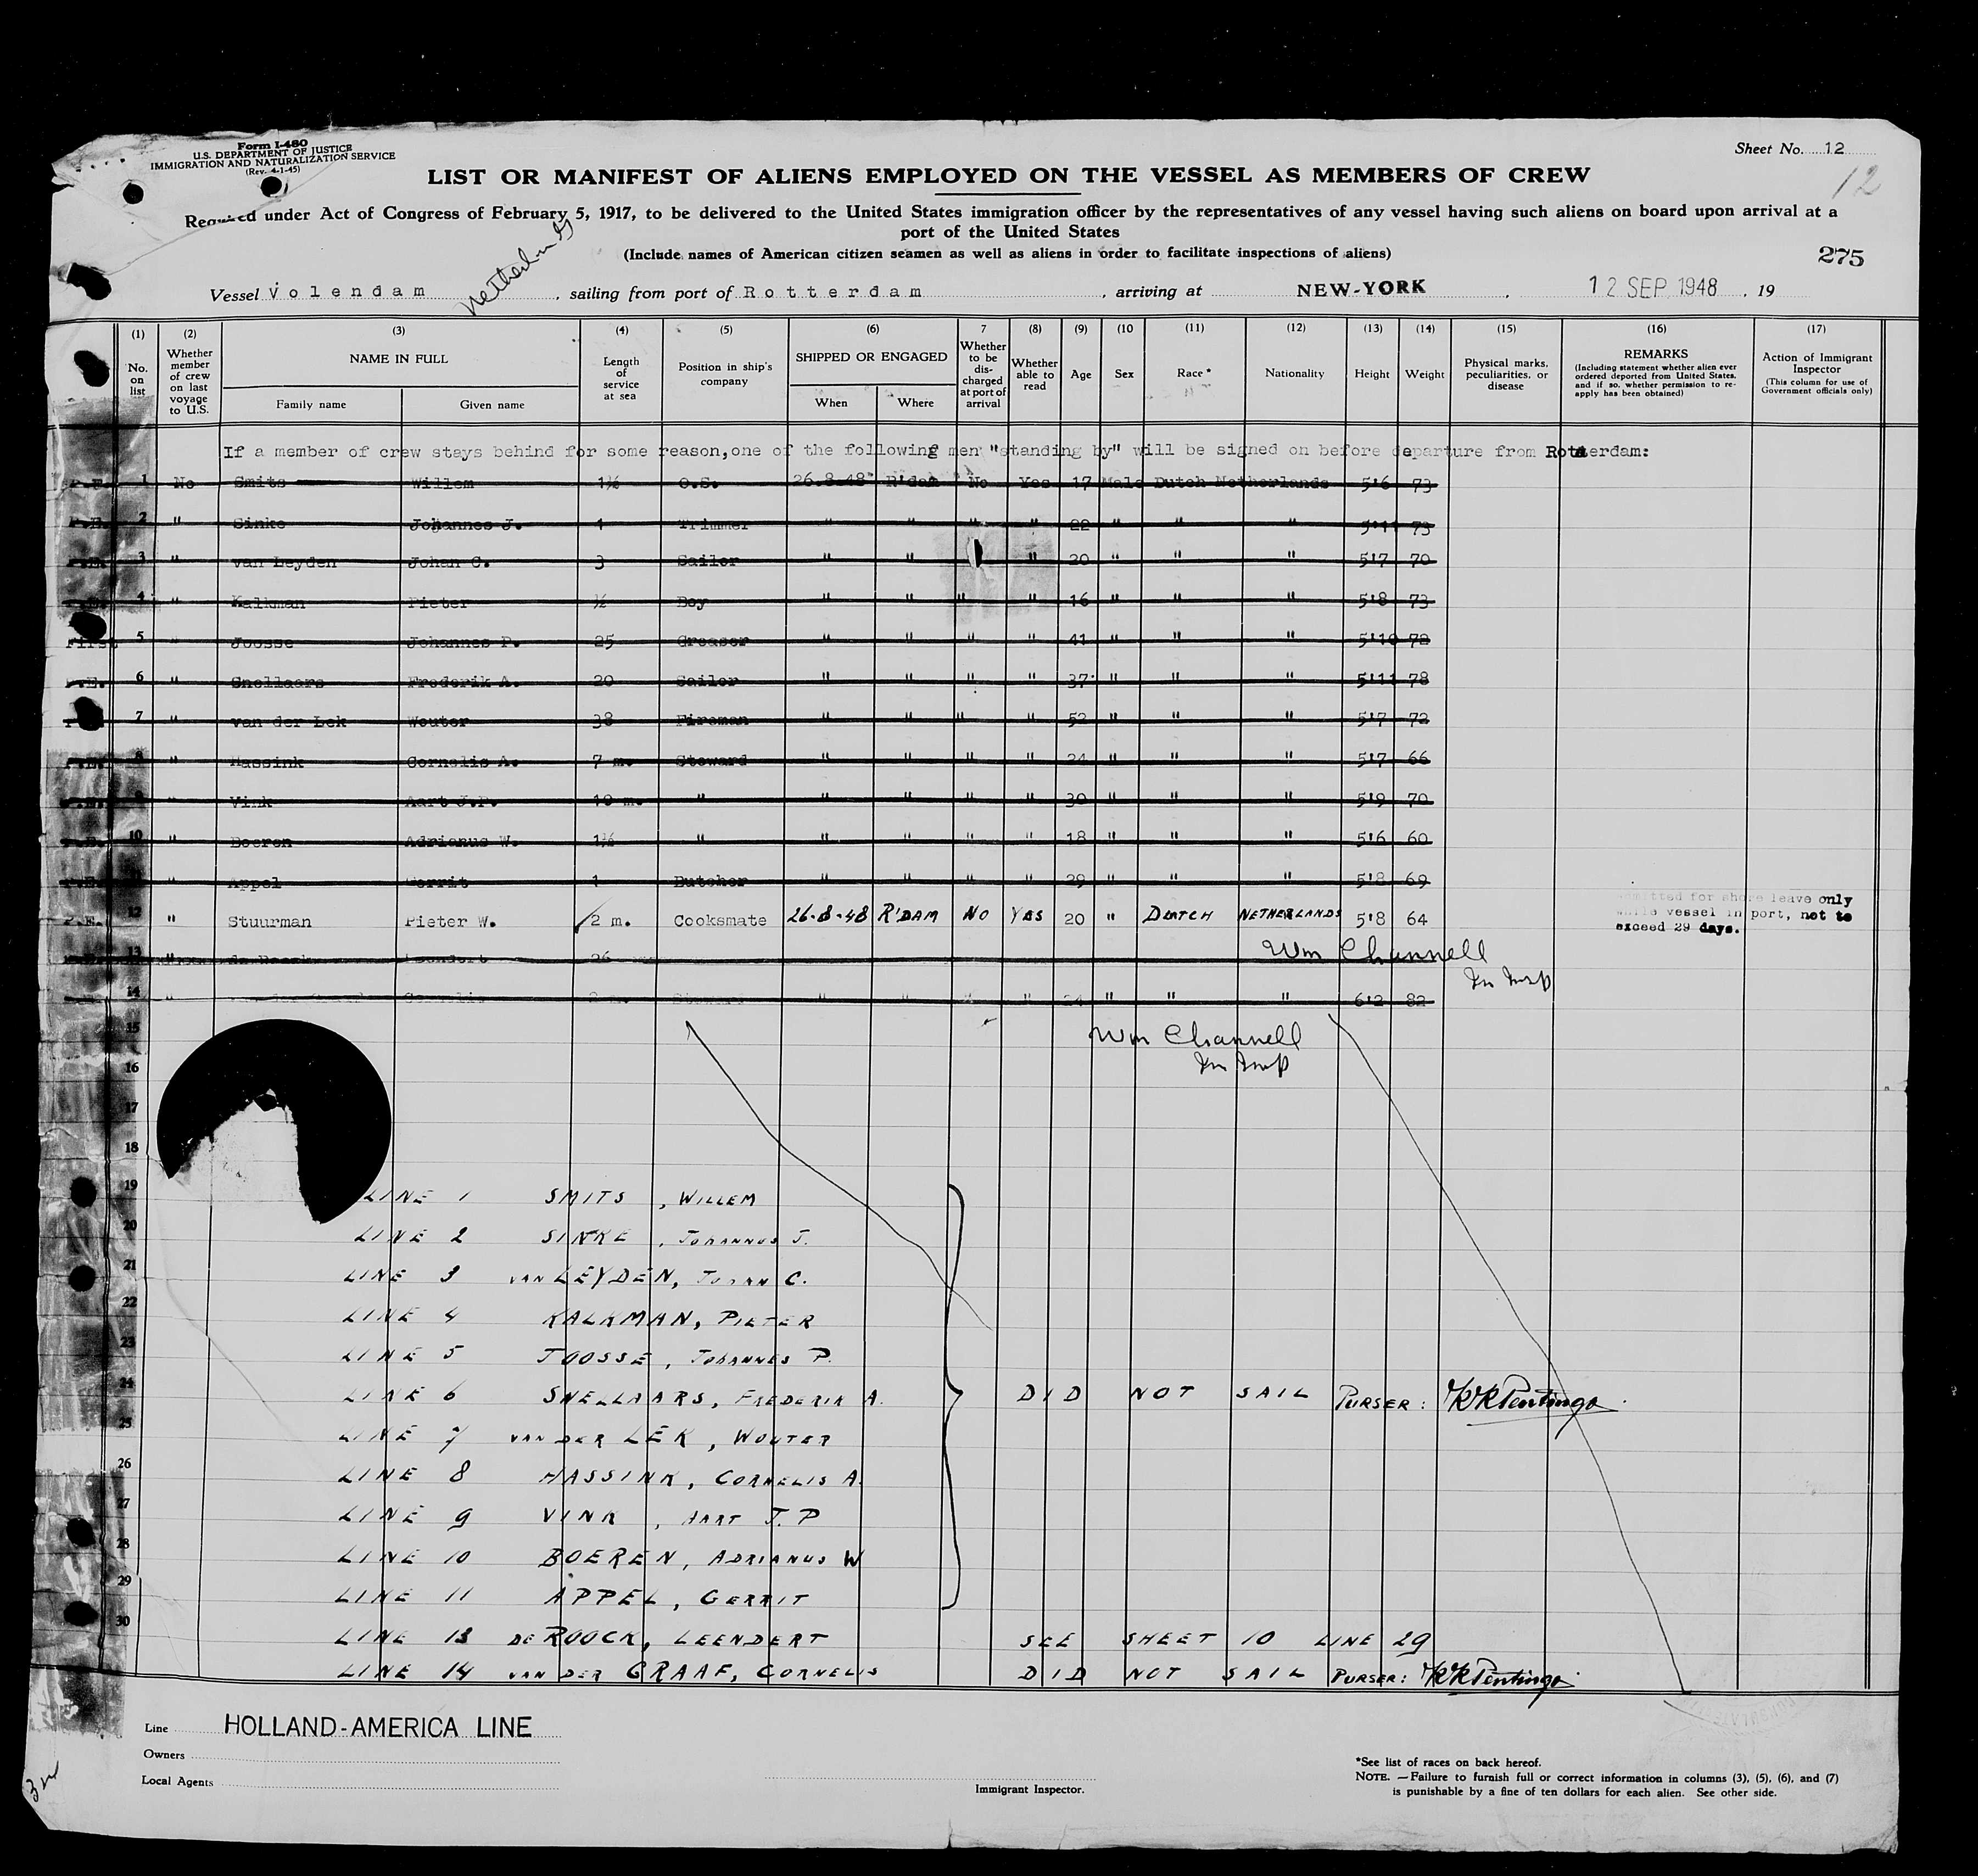 Form I-480
U.S. DEPARTMENT OF JUSTICE
IMMIGRATION AND NATURALIZATION SERVICE
(Rev. 4-1-45)
Sheet No. 12
12
LIST OR MANIFEST OF ALIENS EMPLOYED ON THE VESSEL AS MEMBERS OF CREW
Required under Act of Congress of February 5, 1917, to be delivered to the United States immigration officer by the representatives of any vessel having such aliens on board upon arrival at a
port of the United States
(Include names of American citizen seamen as well as aliens in order to facilitate inspections of aliens)
275
Vessel Volendam, sailing from port of Rotterdam, arriving at NEW-YORK, 12 SEP 1948, 19
(1) (2) (3) (4) (5) (6) 7 (8) (9) (10 (11) (12) (13) (14) (15) (16) (17)
No. on list
Whether member of crew on last voyage to U.S.
NAME IN FULL
Family name Given name
Length of service at sea
Position in ship's company
SHIPPED OR ENGAGED
When Where
Whether to be discharged at port of arrival
Whether able to read
Age Sex Race* Nationality Height Weight
Physical marks, peculiarities, or disease
REMARKS
(Including statement whether alien ever ordered deported from United States, and if so, whether permission to re-apply has been obtained)
Action of Immigrant Inspector
(This column for use of Government officials only)
If a member of crew stays behind for some reason, one of the following men "standing by" will be signed on before departure from Rotterdam:
1 No Smits Willem 1½ O.S. 26.8.48 R'dam No Yes 17 Male Dutch Netherlands 5'6 73
P.E. 2 " Sinke Johannes J. 1 Trimmer " " " " 22 " " " 5'11 73
P.E. 3 " van Leyden Johan C. 3 Sailor " " " 20 " " " 5'7 70
4 " Kalkman Pieter ½ Boy " " " " 16 " " " 5'8 73
First 5 " Joosse Johannes P. 25 Greaser " " " " 41 " " " 5'10 72
P.E. 6 " Snellaars Frederik A. 20 Sailor " " " " 37 " " " 5'11 78
7 " van der Lek Wouter 38 Fireman " " " " 52 " " " 5'7 72
P.E. 8 " Hassink Cornelis A. 7 m. Steward " " " " 24 " " " 5'7 66
P.E. 9 " Vink Aart J.P. 10 m. " " " " " 30 " " " 5'9 70
P.E. 10 " Boeren Adrianus W. 1½ " " " " " 18 " " " 5'6 60
P.E. " Appel Gerrit 1 Butcher " " " " 29 " " " 5'8 69
P.E. 12 " Stuurman Pieter W. 2 m. Cooksmate 26-8-48 R'DAM NO YES 20 " DUTCH NETHERLANDS 5'8 64
leave only
while vessel in port, not to
exceed 29 days.
13 " de Roock Leendert 26
Wm Channell
Im Insp
14 " Cornelis Steward " " " " 24 " " " 6'2 82
15
Wm Channell
Im Insp
16
17
18
19
20
21
22
23
24
25
26
27
28
29
30
LINE 1 SMITS, WILLEM
LINE 2 SINKE, JOHANNES J.
LINE 3 VAN LEYDEN, JOHAN C.
LINE 4 KALKMAN, PIETER
LINE 5 JOOSSE, JOHANNES P.
LINE 6 SNELLAARS, FREDERIK A. DID NOT SAIL PURSER:
LINE 7 VAN DER LEK, WOUTER
LINE 8 HASSINK, CORNELIS A.
LINE 9 VINK, AART J.P
LINE 10 BOEREN, ADRIANUS W
LINE 11 APPEL, GERRIT
LINE 13 DE ROOCK, LEENDERT SEE SHEET 10 LINE 29
LINE 14 VAN DER GRAAF, CORNELIS DID NOT SAIL PURSER:
Line HOLLAND-AMERICA LINE
Owners
Local Agents
Immigrant Inspector.
*See list of races on back hereof.
NOTE. —Failure to furnish full or correct information in columns (3), (5), (6), and (7)
is punishable by a fine of ten dollars for each alien. See other side.